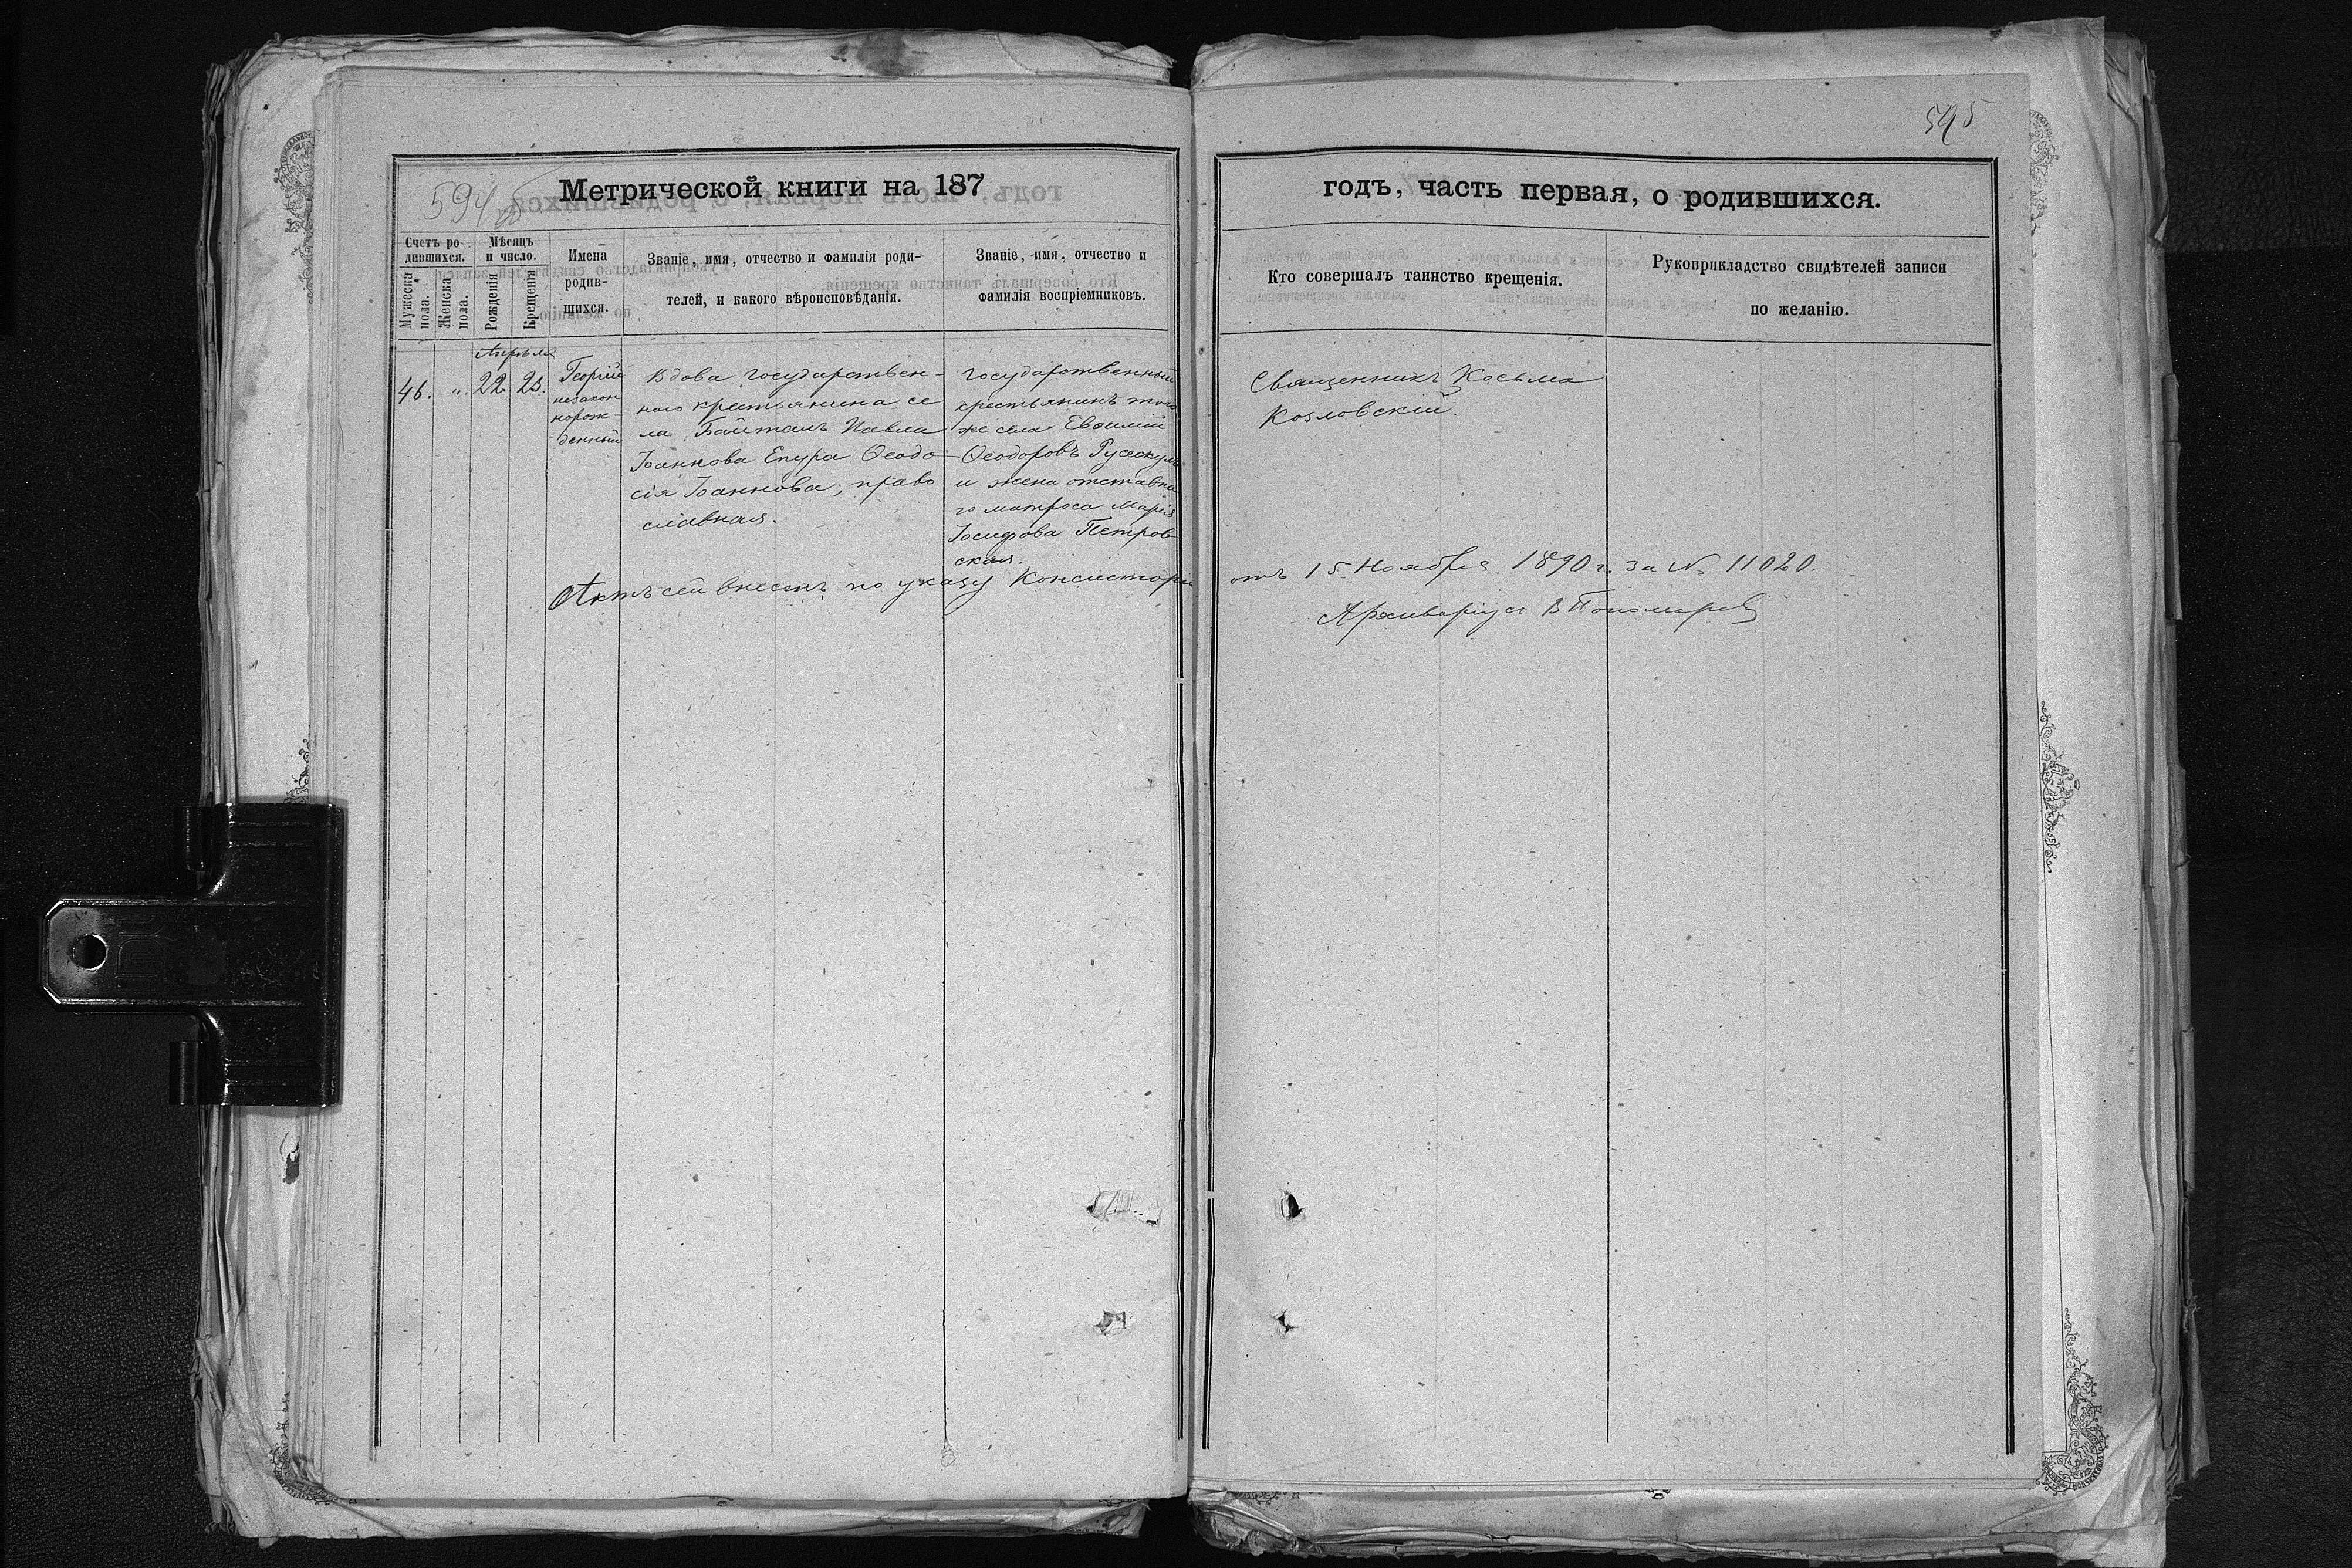 595
594 об
Метрической книги на 187
годъ, часть первая, о родившихся.
Счетъ ро-
дившихся.
Мужеска
пола.
Женска
пола.
Мѣсяцъ
и число.
Рожденія
Крещенія
Имена
родив-
шихся.
Званіе, имя, отчество и фамилія роди-
телей, и какого вѣроисповѣданія.
Званіе, имя, отчество и
фамилія воспріемниковъ.
Кто совершалъ таинство крещенія.
Рукоприкладство свидѣтелей записи
по желанію.
Апрѣля
46. „ 22. 23.
Георгій
незакон
норож-
денный
Вдова государствен-
наго крестьянина се
ла Баиталъ Павла
Іоаннова Епура Ѳеодо-
сія Іоаннова, право
славная.
Государственный
крестьянинъ того
же села Евѳимій
Ѳеодоровъ
и жена отставна
го матроса Марія
Іосифова Петров
ская.
Священникъ Косьма
Козловскій.
Актъ сей внесенъ по указу Консисторіи
отъ 15 Ноября 1890 г. за № 11020.
Архиваріусъ В Пономаревъ